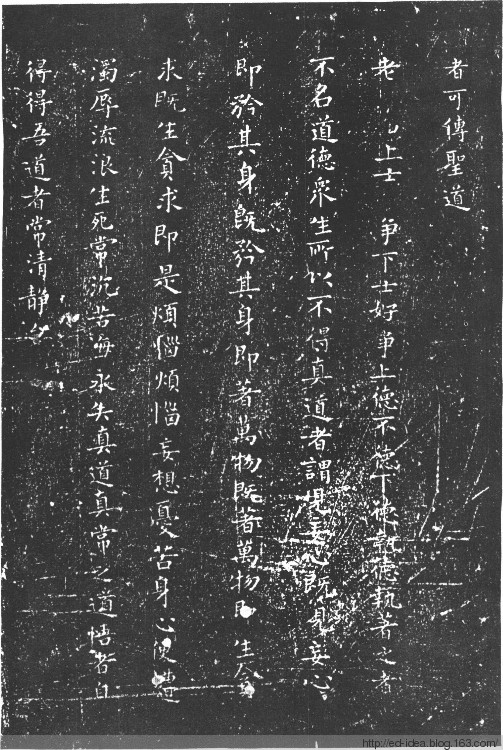 者可傳聖道
老 上士 爭下士好爭上德不德下德執德執著之者
不名道德眾生所以不得真道者謂見妄心既見妄心
即矜其身既矜其身即著萬物既著萬物即生貪
求既生貪求即是煩惱煩惱妄想憂苦身心便遭
濁辱流浪生死常沉苦海永失真道真常之道悟者自
得得吾道者常清静
http://ed-idea.blog.163.com/